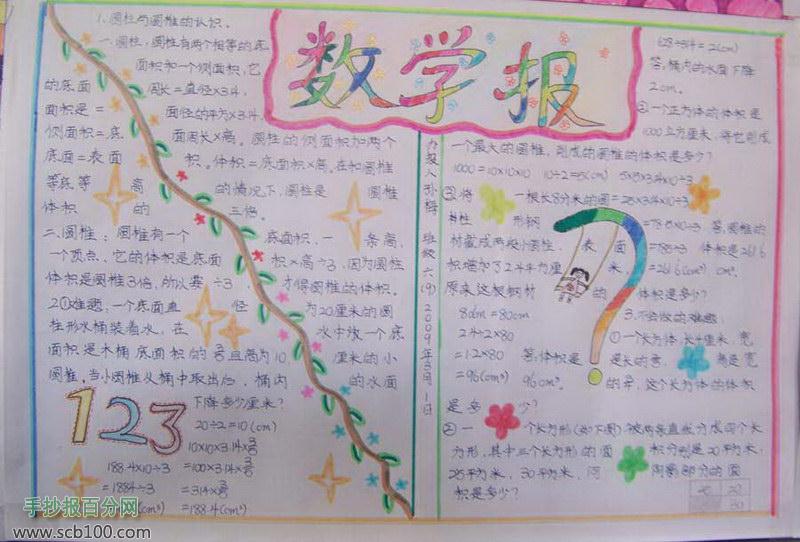 1.圆柱与圆椎的认识。
一.圆柱:圆柱有两个相等的底
面积和一个侧面积,它
的底面 周长=直径×3.14,
面积是= 面径的平方×3.14,
侧面积=底 面周长×高。圆柱的侧面积加两个
底面=表面 积。体积=底面积×高。在和圆椎
等底等 高 的情况下,圆柱是 圆椎
体积 的 三倍。
二.圆锥:圆椎有一个 底面积,一 条高,
一个顶点,它的体积是底面 积×高÷3,因为圆柱
体积是圆椎3倍,所以要÷3 才得圆椎的体积。
2①难题:一个底面直 径 为20厘米的圆
柱形水桶装着水,在 水中放一个底
面积是木桶底面积的 且高为10 厘米的小
圆椎。当小圆椎从桶中取出后,桶内 的水面
下降多少厘米?
123
20÷2=10(cm)
10×10×3.14×
188.4×10÷3 =100×3.14×
=1884÷3 =314×
=188.4(cm³)
数学报
办报人 孙梅 班级 六(9) 2009年3月1日
628÷314=2(cm)
答:桶内的水面下降
2cm。
②一个正方体的体积是
1000立方厘米,将它削成
一个最大的圆椎,削成的圆椎的体积是多少?
1000=10×10×10 10÷2=5(cm) 5×5×3.14×10÷3
③.将 一根长8分米的圆 =25×3.14×10÷3
柱 形钢 =78.5×10÷3 答:圆椎的
材截成两段小圆柱, 表 面 =785÷3 体积是261.6
积增加了2.4平方厘 米, ≈261.6(cm³) cm³。
原来这根钢材 的 体积是多少?
8dm=80cm 3.不会做的难题:
2.4÷2×80 ①一个长方体,长4厘米,宽
=1.2×80 答:体积是 是长的 ,高是宽
=96(cm³) 96cm³。 的 ,这个长方体的体积
是多 少?
②一 个长方形(如下图)被两条直线分成四个长
方形,其中三个长方形的面 积分别是20平方米,
25平方米,30平方米,问 阴影部分的面
积是多少?
20
30
手抄报百分网
www.scb100.com